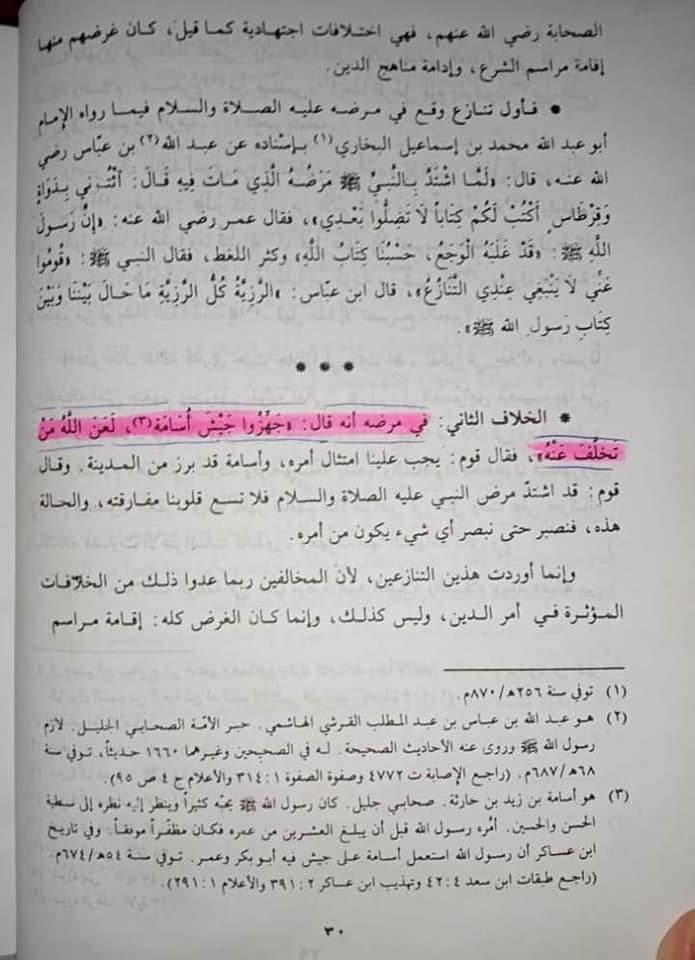 الصحابة رضي الله عنهم، فهي اختلافات اجتهادية كما قيل، كان غرضهم منها
إقامة مراسم الشرع، وإدامة مناهج الدين.
* فأول تنازع وقع في مرضه عليه الصلاة والسلام فيما رواه الإمام
أبو عبد الله محمد بن إسماعيل البخاري (١) بإسْناده عن عبد الله (٢) بن عبّاس رضي
الله عنه، قال: «لَمَّا اشْتَدَّ بِالنَّبِيِّ ﷺ مَرَضُهُ الَّذِي مَاتَ فِيهِ قَالَ: ائْتُونِي بِدَوَاةٍ
وَقِرْطَاسٍ أَكْتُبْ لَكُمْ كِتَاباً لَا تَضِلُّوا بَعْدِي»، فقال عمر رضي الله عنه: «إِنَّ رَسُولَ
اللَّهِ ﷺ: «قَدْ غَلَبَهُ الْوَجَعُ، حَسْبُنَا كِتَابُ اللَّهِ» وكثر اللغط، فقال النبي ﷺ: «قُومُوا
عَنِّي لَا يَنْبَغِي عِنْدِي التَّنَازُعُ»، قال ابن عباس: «الرَّزِيَّةُ كُلُّ الرَّزِيَّةِ مَا حَالَ بَيْنَنَا وَبَيْنَ
كِتَابِ رَسُولِ اللَّهِ ﷺ».
* * *
* الخلاف الثاني: في مرضه أنه قال: «جَهِّزُوا جَيْشَ أُسَامَةَ (٣)، لَعَنَ اللَّهُ مَنْ
تَخَلَّفَ عَنْهُ»، فقال قوم: يجب علينا امتثال أمره، وأسامة قد برز من المدينة. وقال
قوم: قد اشتدّ مرض النبي عليه الصلاة والسلام فلا تسع قلوبنا مفارقته، والحالة
هذه، فنصبر حتى نبصر أي شيء يكون من أمره.
وإنما أوردت هذين التنازعين، لأنّ المخالفين ربما عدوا ذلك من الخلافات
المؤثرة في أمر الدين، وليس كذلك، وإنما كان الغرض كله: إقامة مراسم
(١) توفي سنة ٢٥٦هـ/٨٧٠م.
(٢) هو عبد الله بن عباس بن عبد المطلب القرشي الهاشمي. حبر الأمّة الصحابي الجليل. لازم
رسول الله ﷺ وروى عنه الأحاديث الصحيحة. له في الصحيحين وغيرهما ١٦٦٠ حديثاً، توفي سنة
٦٨هـ/٦٨٧م. (راجع الإصابة ت ٤٧٧٢ وصفوة الصفوة ١: ٣١٤ والأعلام ج ٤ ص ٩٥).
(٣) هو أسامة بن زيد بن حارثة. صحابي جليل. كان رسول الله ﷺ يحبّه كثيراً وينظر إليه نظره إلى سبطيه
الحسن والحسين. أمّره رسول الله قبل أن يبلغ العشرين من عمره فكان مظفّراً موفقاً. وفي تاريخ
ابن عساكر أن رسول الله استعمل أسامة على جيش فيه أبو بكر وعمر. توفي سنة ٥٤هـ/٦٧٤م.
(راجع طبقات ابن سعد ٤: ٤٢ وتهذيب ابن عساكر ٢: ٣٩١ والأعلام ١: ٢٩١).
٣٠